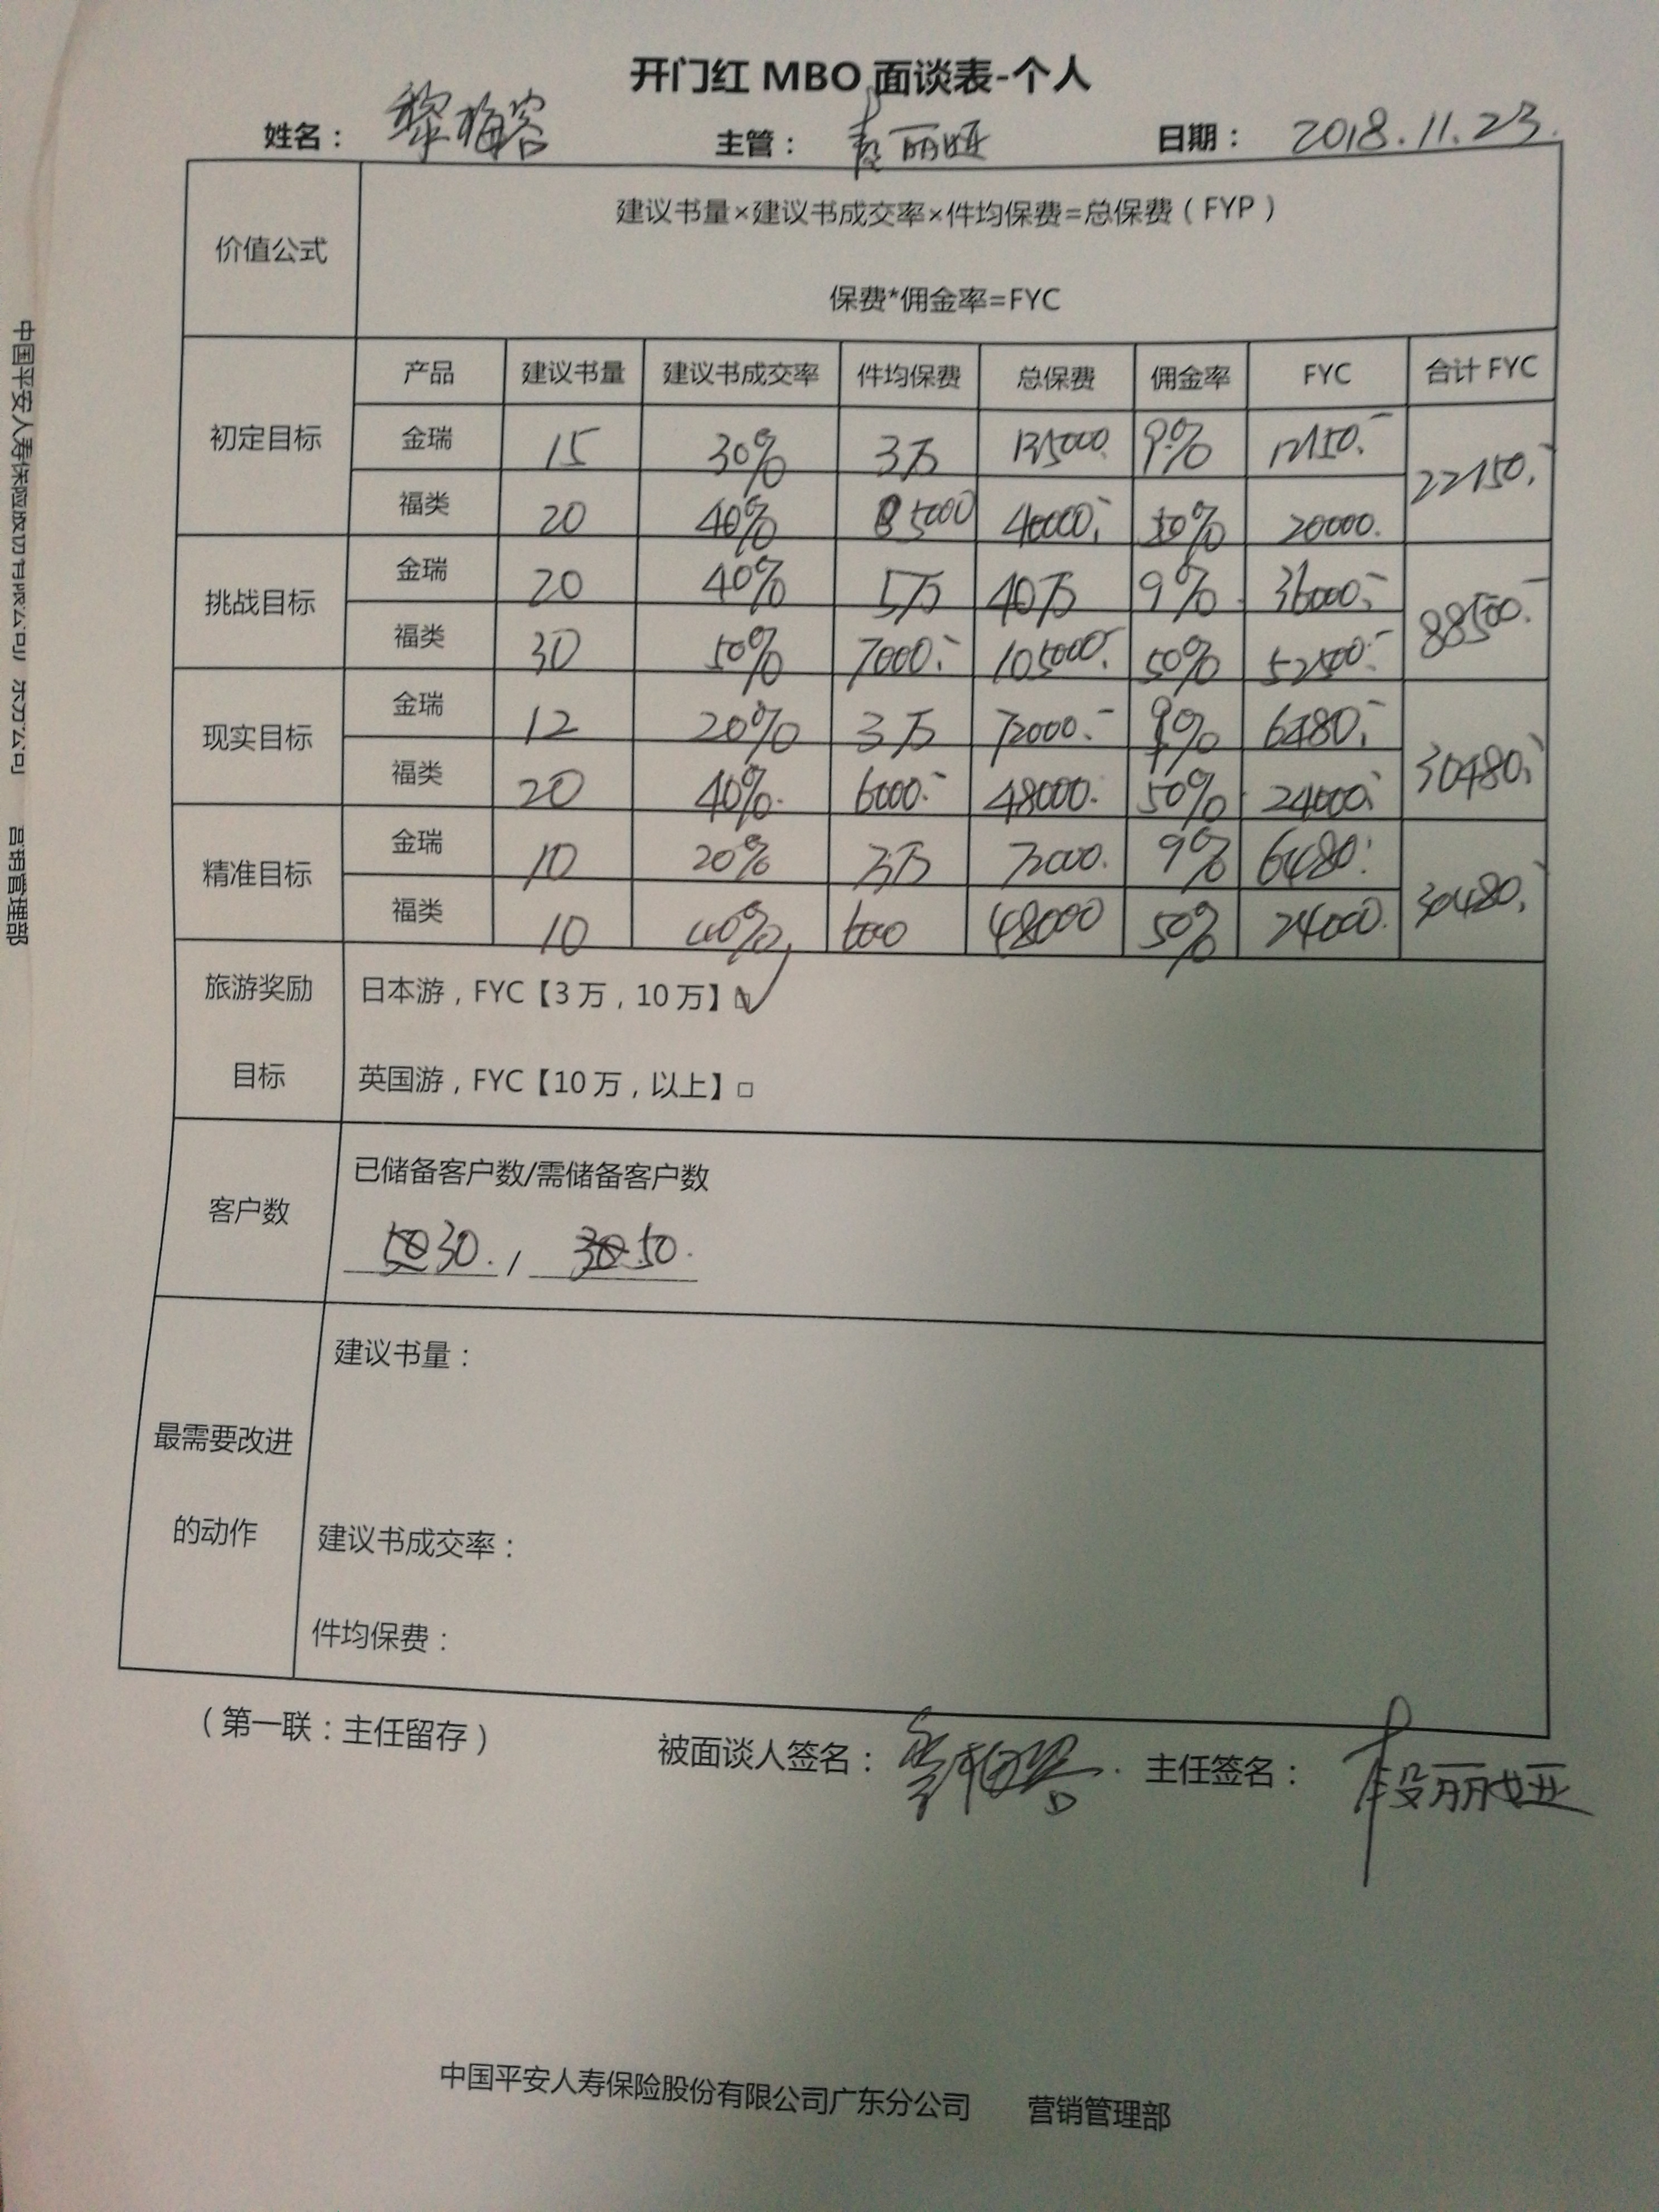 开门红 MBO 面谈表-个人
姓名： 黎梅容 主管： 丽娅 日期： 2018.11.23.
价值公式
建议书量×建议书成交率×件均保费=总保费（FYP）
保费*佣金率=FYC
产品 建议书量 建议书成交率 件均保费 总保费 佣金率 FYC 合计 FYC
初定目标
金瑞 15 30% 3万 135000. 9% 12150.- 22150.-
福类 20 40% 5000 40000.- 50% 20000.
挑战目标
金瑞 20 40% 5万 40万 9% 36000.- 88500.-
福类 30 50% 7000.- 105000.- 50% 52500.-
现实目标
金瑞 12 20% 3万 72000.- 9% 6480.- 30480.-
福类 20 40%. 6000.- 48000.- 50% 24000.-
精准目标
金瑞 10 20% 3万 72000. 9% 6480. 30480.
福类 10 40% 6000 48000 50% 24000.
旅游奖励
目标
日本游，FYC【3万，10万】☑
英国游，FYC【10万，以上】□
客户数
已储备客户数/需储备客户数
30. / 50.
最需要改进
的动作
建议书量：
建议书成交率：
件均保费：
（第一联：主任留存） 被面谈人签名： 黎梅容 主任签名： 段丽娅
中国平安人寿保险股份有限公司广东分公司 营销管理部
中国平安人寿保险股份有限公司广东分公司 营销管理部